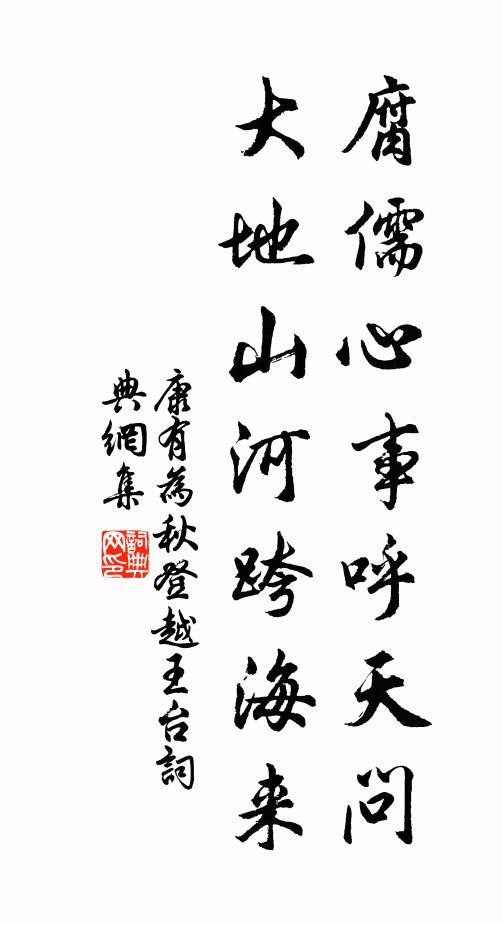 腐儒心事呼天问
大地山河跨海来
康有為秋登越王台詞
典網集
詞典
网印